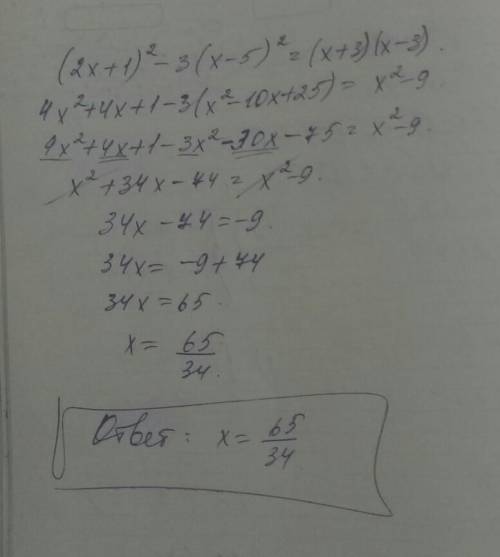 (2x+1)² - 3(x-5)² = (x+3)(x-3).
4x²+4x+1-3(x²-10x+25) = x²-9
4x²+4x+1-3x²-30x-75 = x²-9.
x²+34x-74 = x²-9.
34x-74=-9.
34x = -9+74
34x = 65.
x = 65/34.
Ответ: x = 65/34